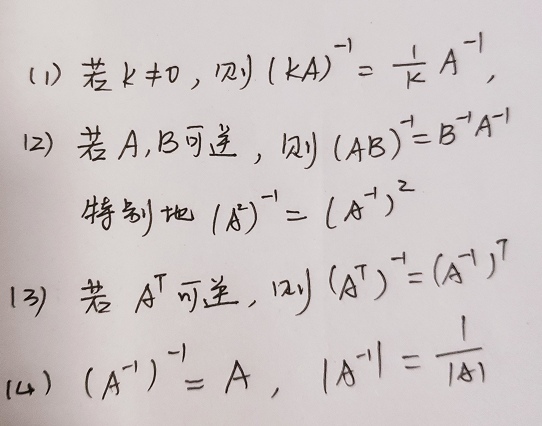 (1) 若 k≠0, 则 (kA)⁻¹ = 1/k A⁻¹,
(2) 若 A,B可逆, 则 (AB)⁻¹ = B⁻¹A⁻¹
特别地 (A²)⁻¹ = (A⁻¹)²
(3) 若 Aᵀ 可逆, 则 (Aᵀ)⁻¹ = (A⁻¹)ᵀ
(4) (A⁻¹)⁻¹ = A, |A⁻¹| = 1/|A|